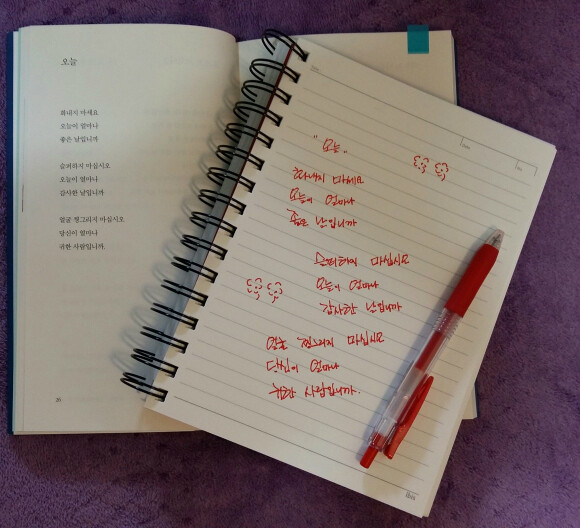 오늘
화내지 마세요
오늘이 얼마나
좋은 날입니까
슬퍼하지 마십시오
오늘이 얼마나
감사한 날입니까
얼굴 찡그리지 마십시오
당신이 얼마나
귀한 사람입니까.
"오늘"
화내지 마세요
오늘이 얼마나
좋은 날입니까
슬퍼하지 마십시오
오늘이 얼마나
감사한 날입니까
얼굴 찡그리지 마십시오
당신이 얼마나
귀한 사람입니까.